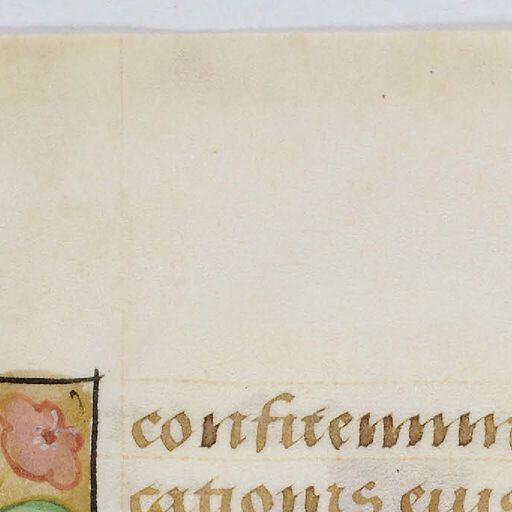 confitemini
cationis eius